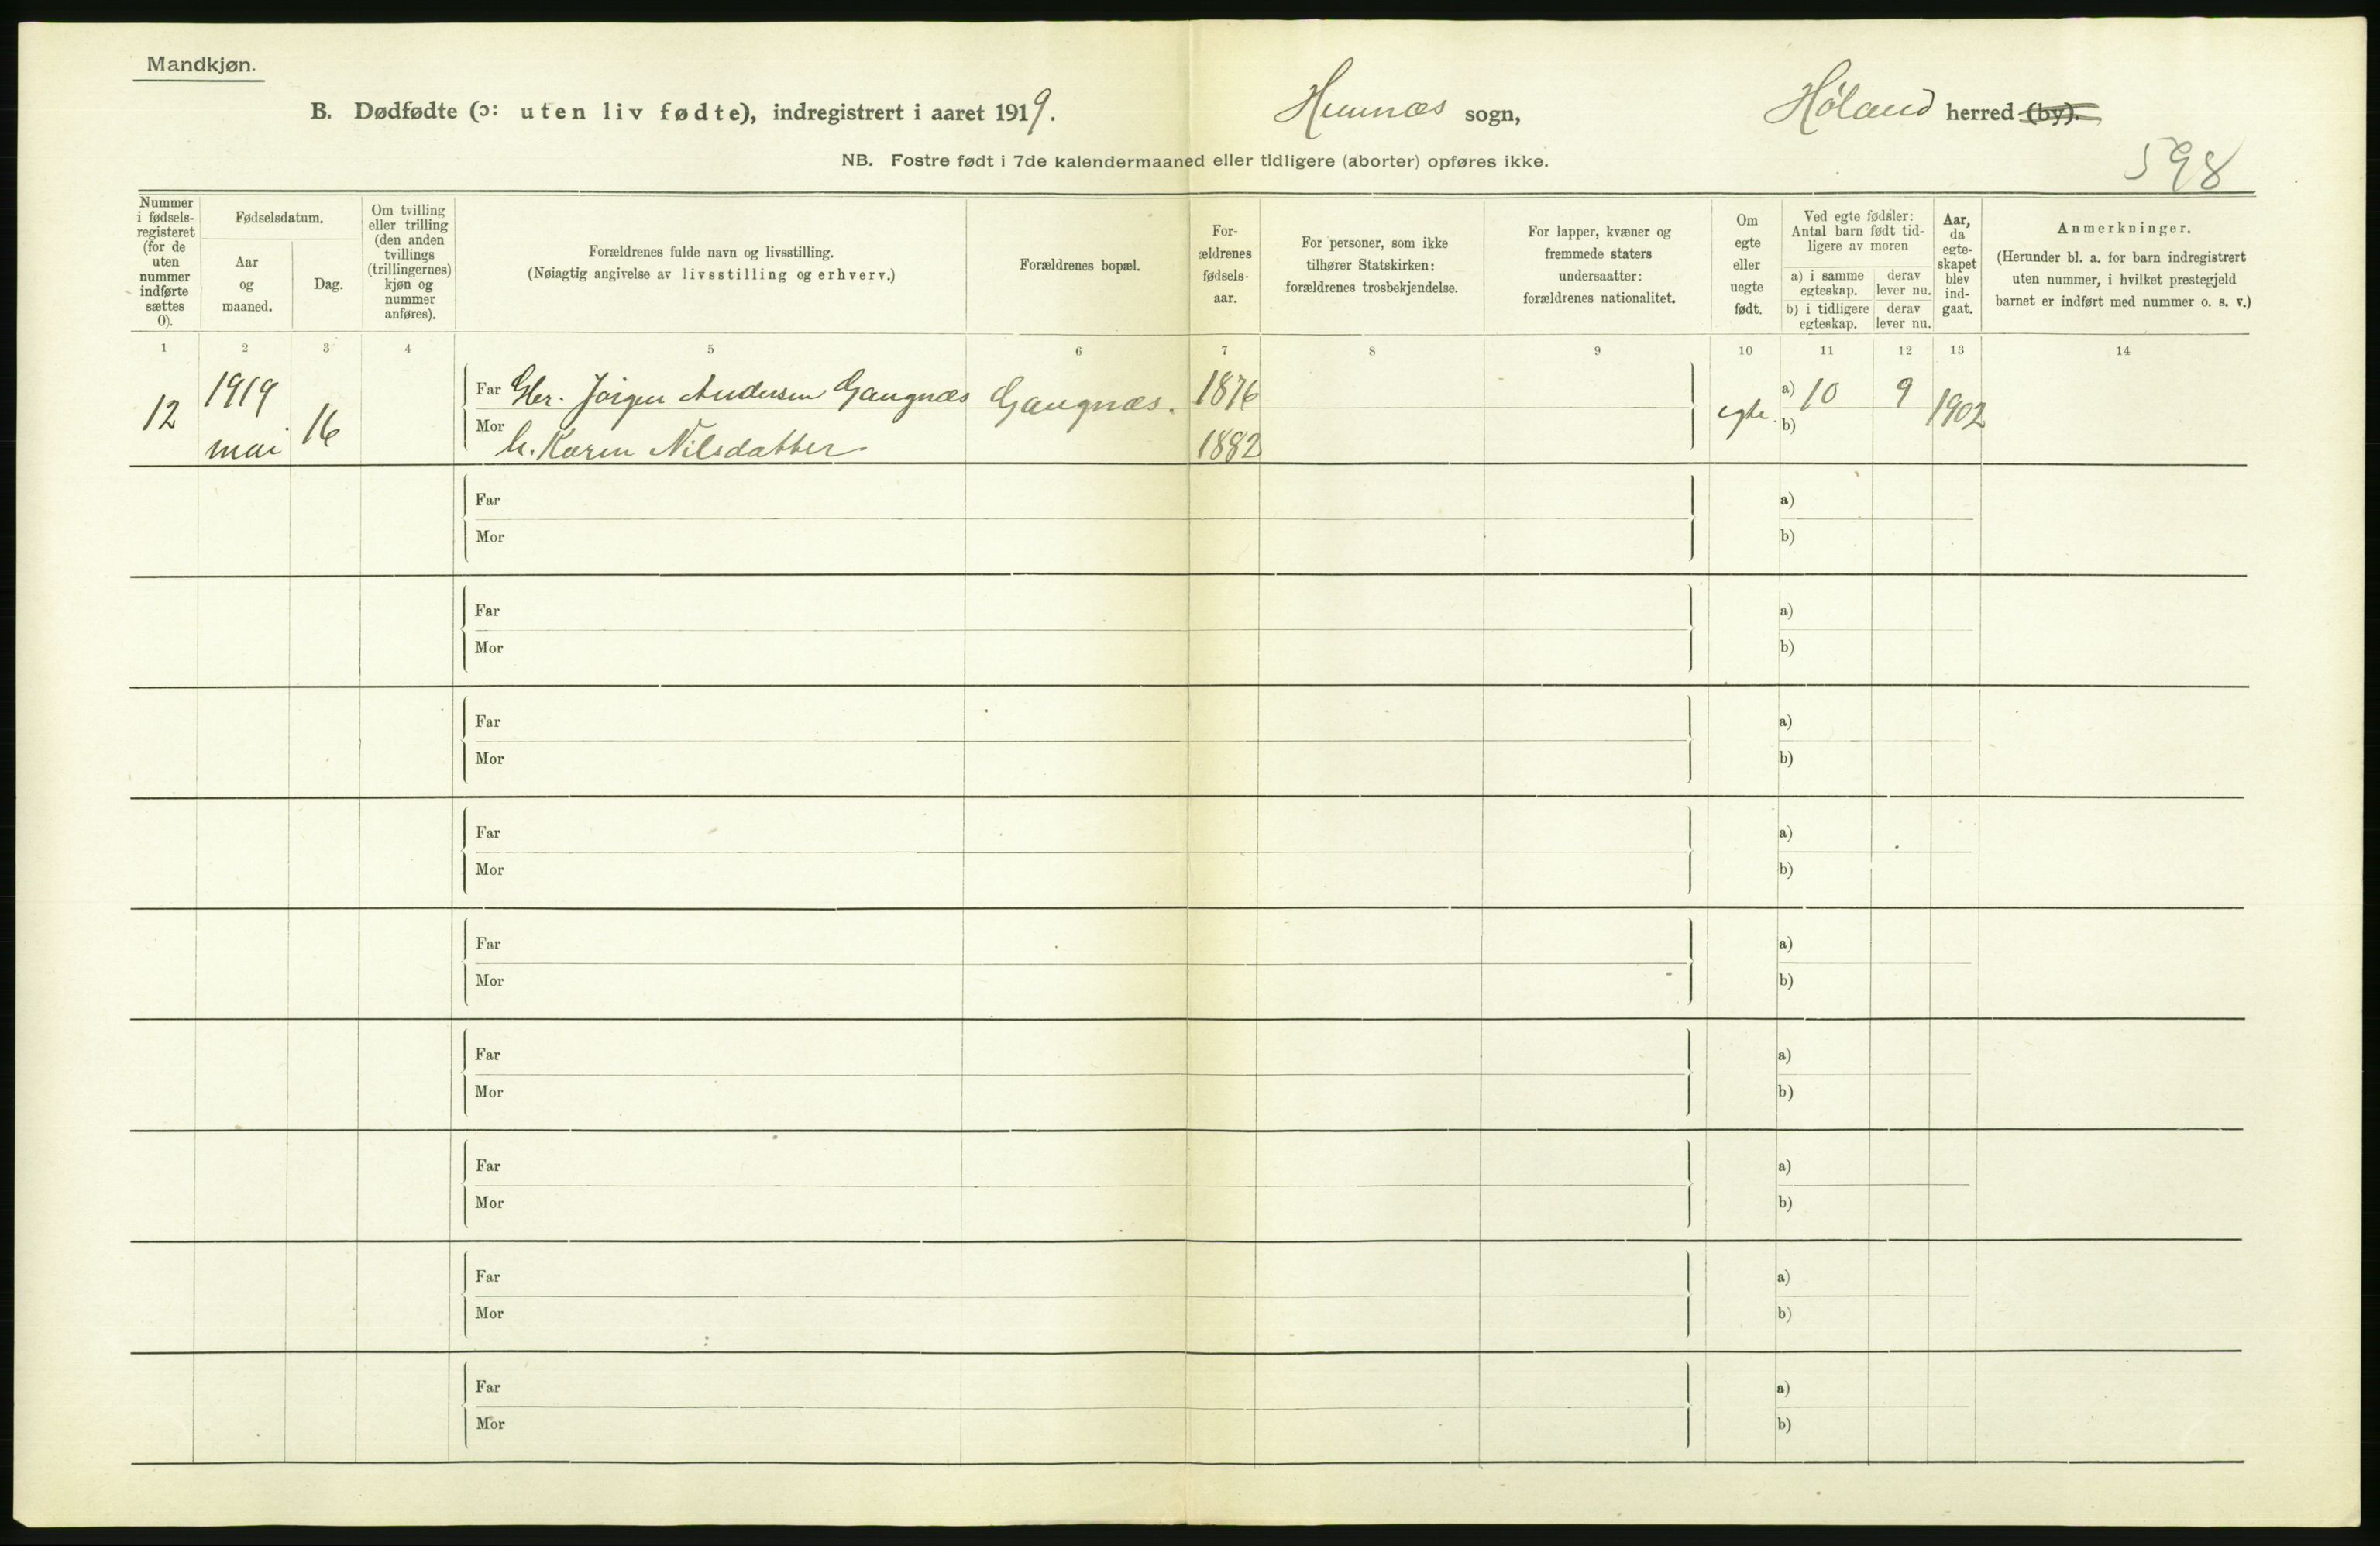 Mandkjøn.
B. Dødfødte (ɔ: uten liv fødte), indregistrert i aaret 1919. Hemnæs sogn, Høland herred (by).
NB. Fostre født i 7de kalendermaaned eller tidligere (aborter) opføres ikke.
598
Nummer
i fødsels-
registeret
(for de
uten
nummer
indførte
sættes
0).
Fødselsdatum.
Aar
og
maaned.
Dag.
Om tvilling
eller trilling
(den anden
tvillings
(trillingernes)
kjøn og
nummer
anføres).
Forældrenes fulde navn og livsstilling.
(Nøiagtig angivelse av livsstilling og erhverv.)
Forældrenes bopæl.
For-
ældrenes
fødsels-
aar.
For personer, som ikke
tilhører Statskirken:
forældrenes trosbekjendelse.
For lapper, kvæner og
fremmede staters
undersaatter:
forældrenes nationalitet.
Om
egte
eller
uegte
født.
Ved egte fødsler:
Antal barn født tid-
ligere av moren
a) i samme
egteskap.
derav
lever nu.
b) i tidligere
egteskap.
derav
lever nu.
Aar,
da
egte-
skapet
blev
ind-
gaat.
Anmerkninger.
(Herunder bl. a. for barn indregistrert
uten nummer, i hvilket prestegjeld
barnet er indført med nummer o. s. v.)
1 2 3 4 5 6 7 8 9 10 11 12 13 14
12 1919 mai 16
Far Gbr. Jörgen Andersen Gangnæs Gangnæs. 1876 egte. a) 10 9 1902
Mor h. Karen Nilsdatter 1882 b)
Far a)
Mor b)
Far a)
Mor b)
Far a)
Mor b)
Far a)
Mor b)
Far a)
Mor b)
Far a)
Mor b)
Far a)
Mor b)
Far a)
Mor b)
Far a)
Mor b)